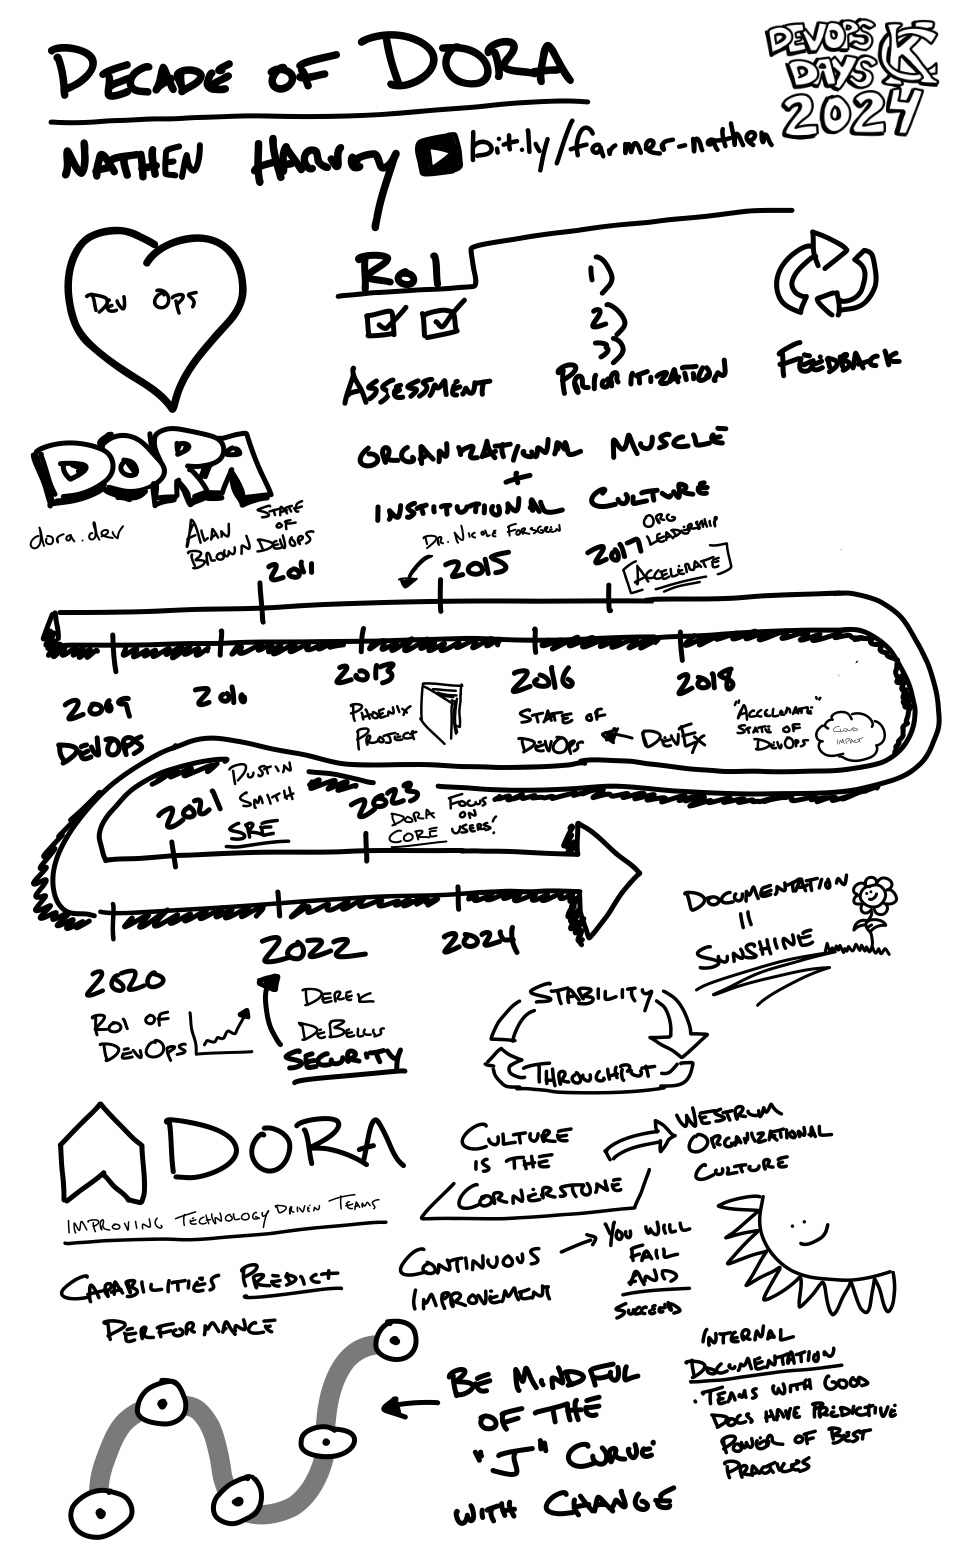 DECADE OF DORA
DEVOPS
DAYS KC
2024
NATHEN HARVEY bit.ly/farmer-nathen
DEV OPS
ROI
1)
2)
3)
ASSESSMENT
PRIORITIZATION
FEEDBACK
DORA
dora.dev
ORGANIZATIONAL MUSCLE
+
INSTITUTIONAL CULTURE
ALAN
BROWN
STATE
OF
DEVOPS
2011
DR. NICOLE FORSGREN
2015
2017
ORG
LEADERSHIP
ACCELERATE
2009
DEVOPS
2010
2013
PHOENIX
PROJECT
2016
STATE OF
DEVOPS
DEVEX
2018
"ACCELERATE"
STATE OF
DEVOPS
CLOUD
IMPACT
2021
DUSTIN
SMITH
SRE
2023
DORA
CORE
FOCUS
ON
USERS!
2020
ROI OF
DEVOPS
2022
DEREK
DEBELLIS
SECURITY
2024
DOCUMENTATION
=
SUNSHINE
STABILITY
THROUGHPUT
DORA
IMPROVING TECHNOLOGY DRIVEN TEAMS
CULTURE
IS THE
CORNERSTONE
WESTRUM
ORGANIZATIONAL
CULTURE
CAPABILITIES PREDICT
PERFORMANCE
CONTINUOUS
IMPROVEMENT
YOU WILL
FAIL
AND
SUCCEED
BE MINDFUL
OF THE
"J" CURVE
WITH CHANGE
INTERNAL
DOCUMENTATION
· TEAMS WITH GOOD
DOCS HAVE PREDICTIVE
POWER OF BEST
PRACTICES